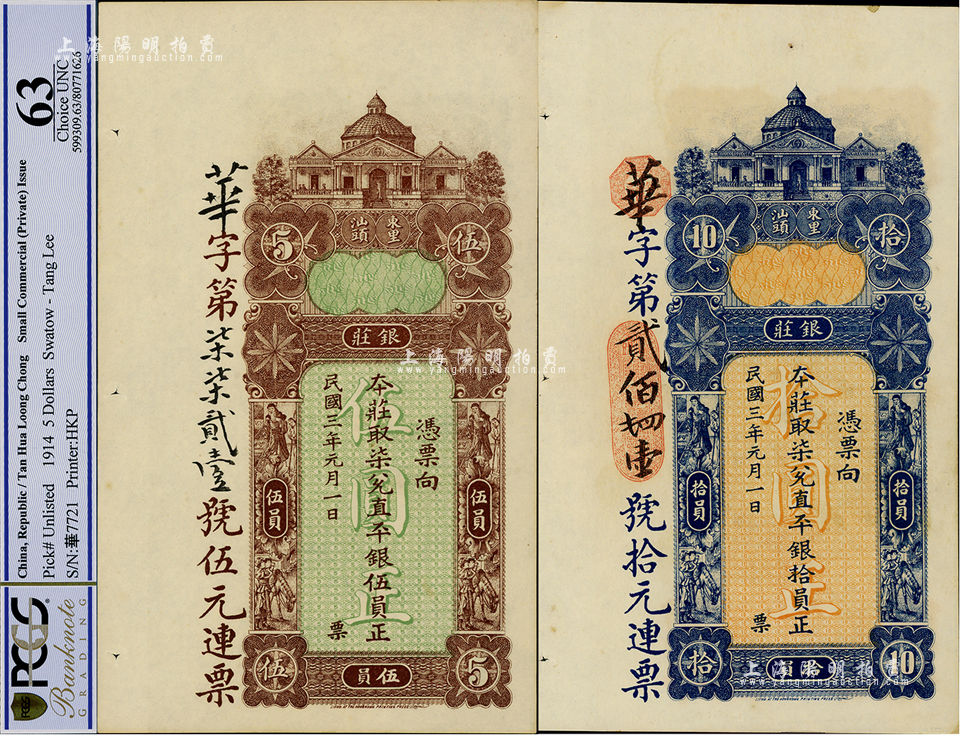 China, Republic / Tan Hua Loong Chong Small Commercial (Private) Issue
Pick# Unlisted 1914 5 Dollars Swatow - Tang Lee
S/N:華7721 Printer:HKP
63
Choice UNC
599309.63/80771626
PCGS
Banknote
GRADING
上海陽明拍賣
www.yangmingauction.com
華字第柒柒貳壹號伍元連票
5
汕頭
東里
伍
銀莊
憑票向
本莊取柒兌直平銀伍員正
民國三年元月一日
票
伍圓正
伍員
伍員
伍
伍員
5
華字第貳佰四壹號拾元連票
10
汕頭
東里
拾
銀莊
憑票向
本莊取柒兌直平銀拾員正
民國三年元月一日
票
拾圓正
拾員
拾員
拾
拾員
10
上海陽明拍賣
www.yangmingauction.com
上海陽明拍賣
www.yangmingauction.com